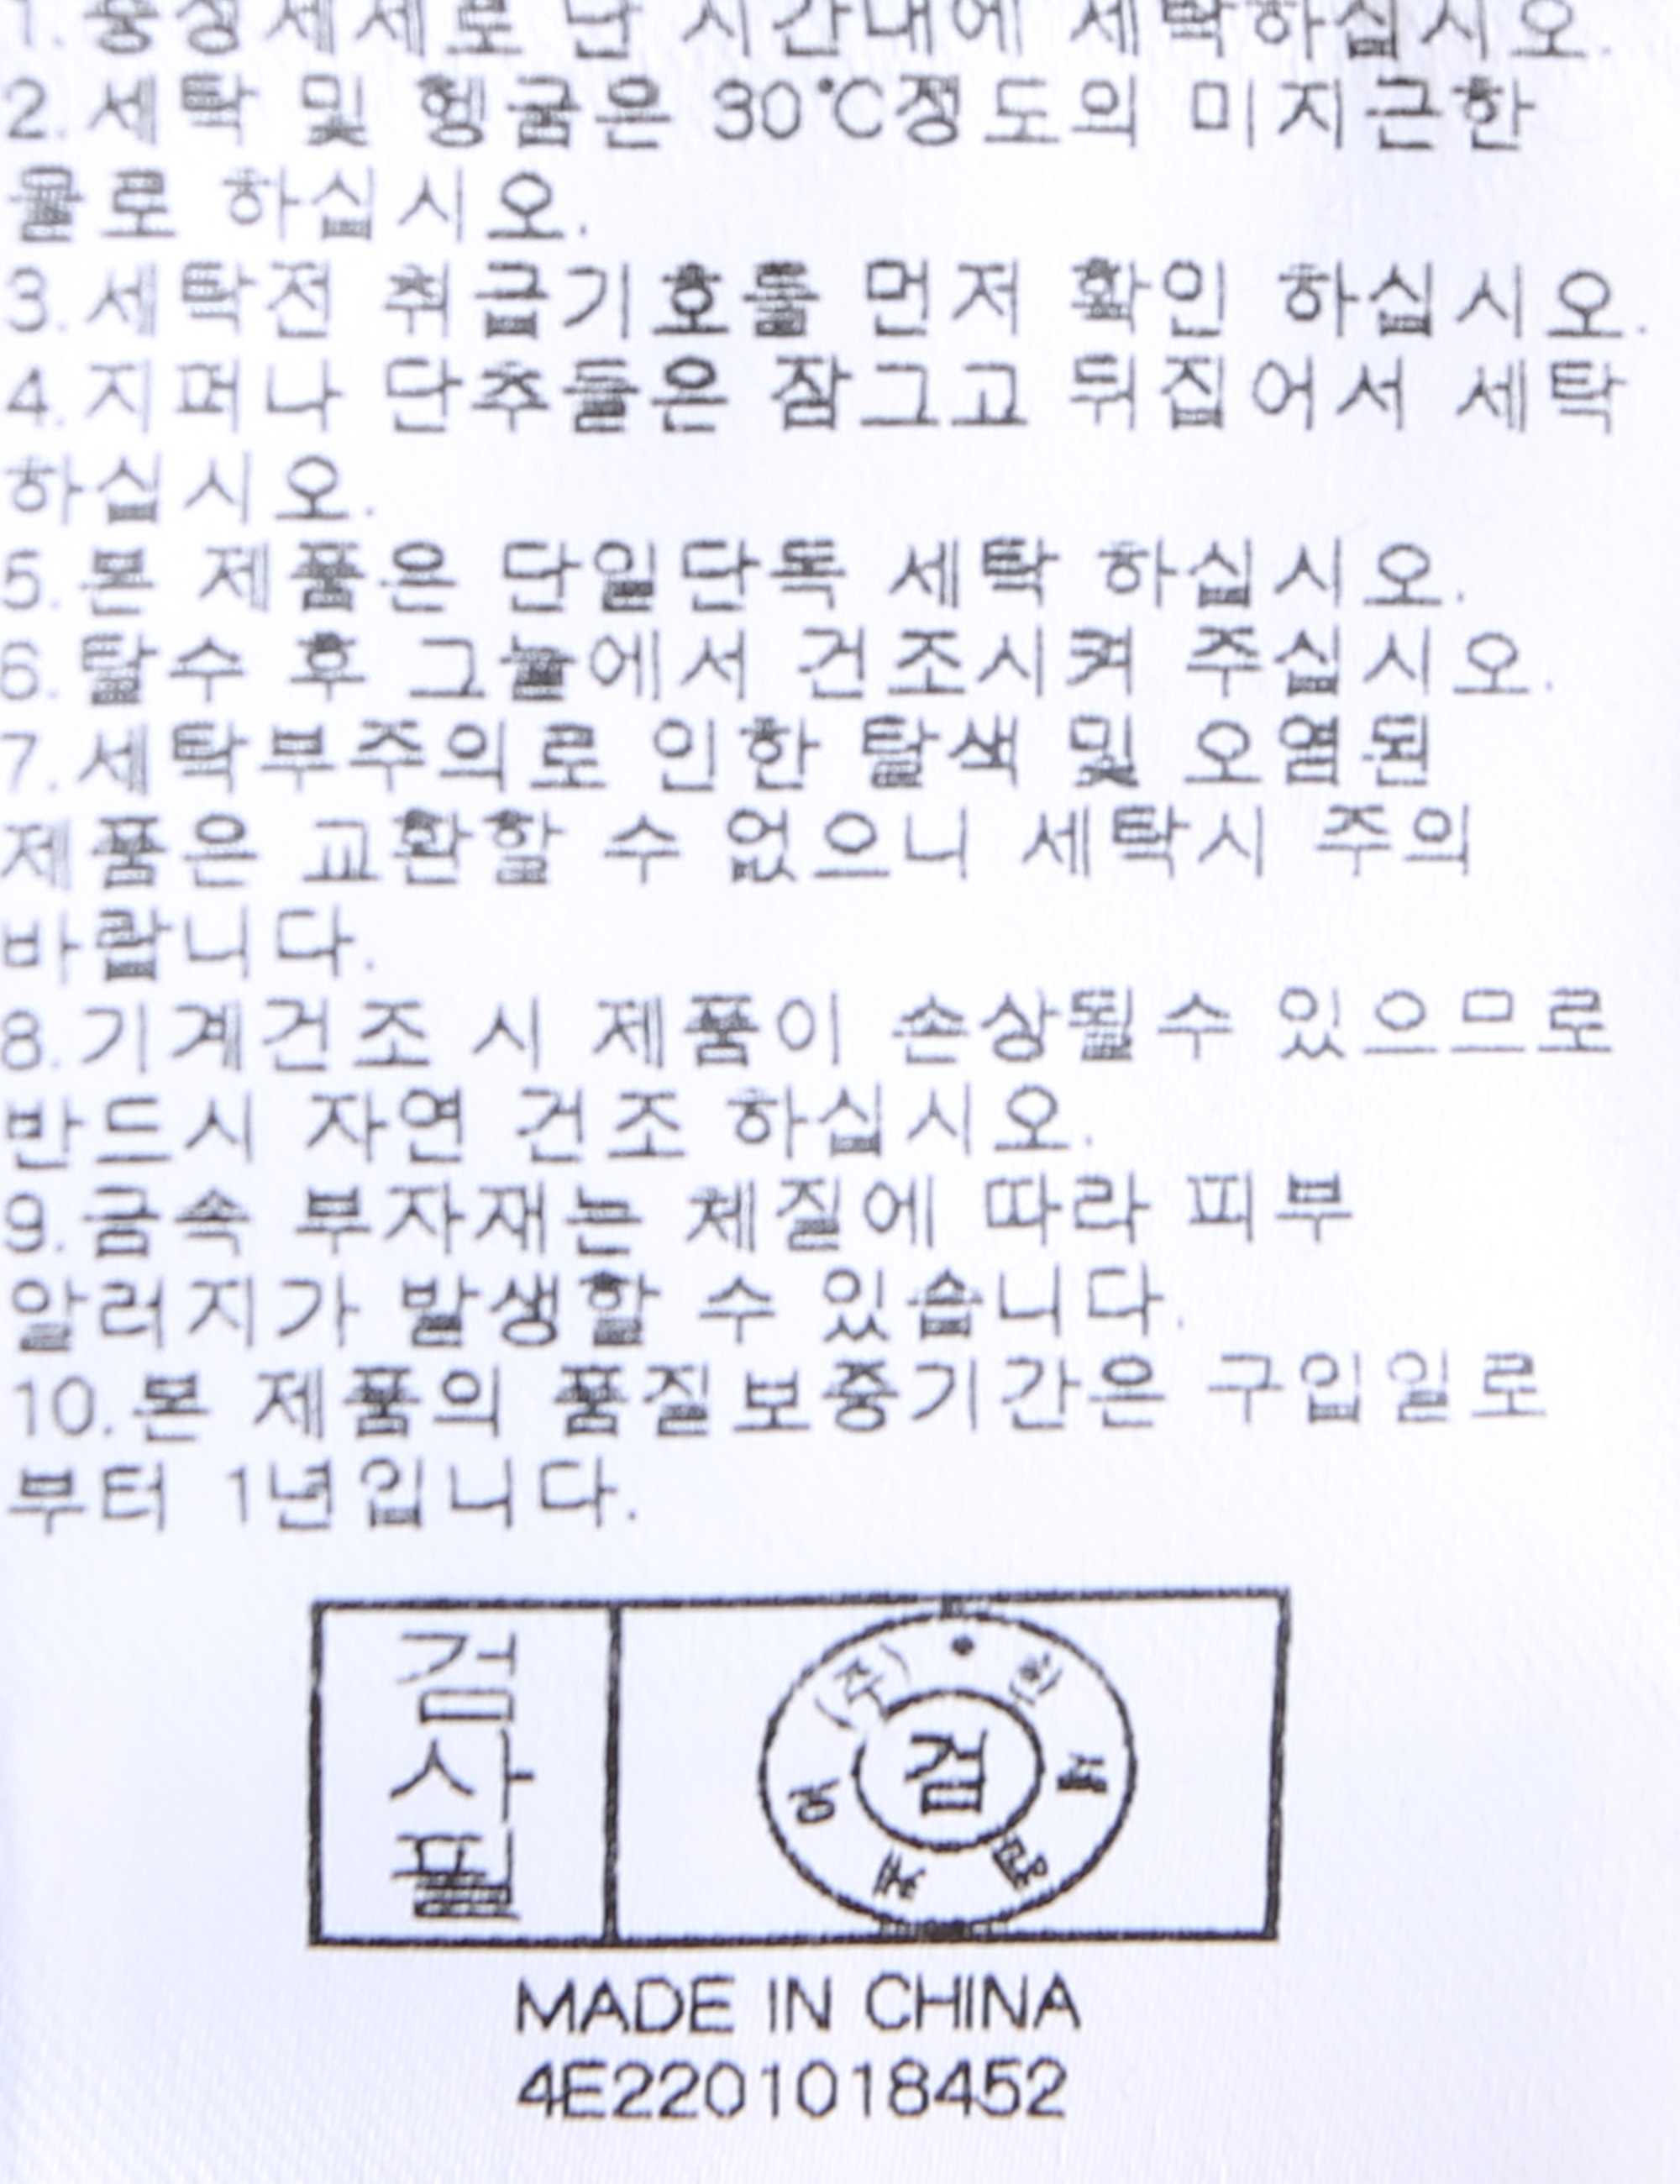 1.중성세제로 단 시간내에 세탁하십시오.
2.세탁 및 헹굼은 30°C정도의 미지근한
물로 하십시오.
3.세탁전 취급기호를 먼저 확인 하십시오.
4.지퍼나 단추들은 잠그고 뒤집어서 세탁
하십시오.
5.본 제품은 단일단독 세탁 하십시오.
6.탈수 후 그늘에서 건조시켜 주십시오.
7.세탁부주의로 인한 탈색 및 오염된
제품은 교환할 수 없으니 세탁시 주의
바랍니다.
8.기계건조 시 제품이 손상될수 있으므로
반드시 자연 건조 하십시오.
9.금속 부자재는 체질에 따라 피부
알러지가 발생할 수 있습니다.
10.본 제품의 품질보증기간은 구입일로
부터 1년입니다.
검사필
(주)
검
MADE IN CHINA
4E2201018452